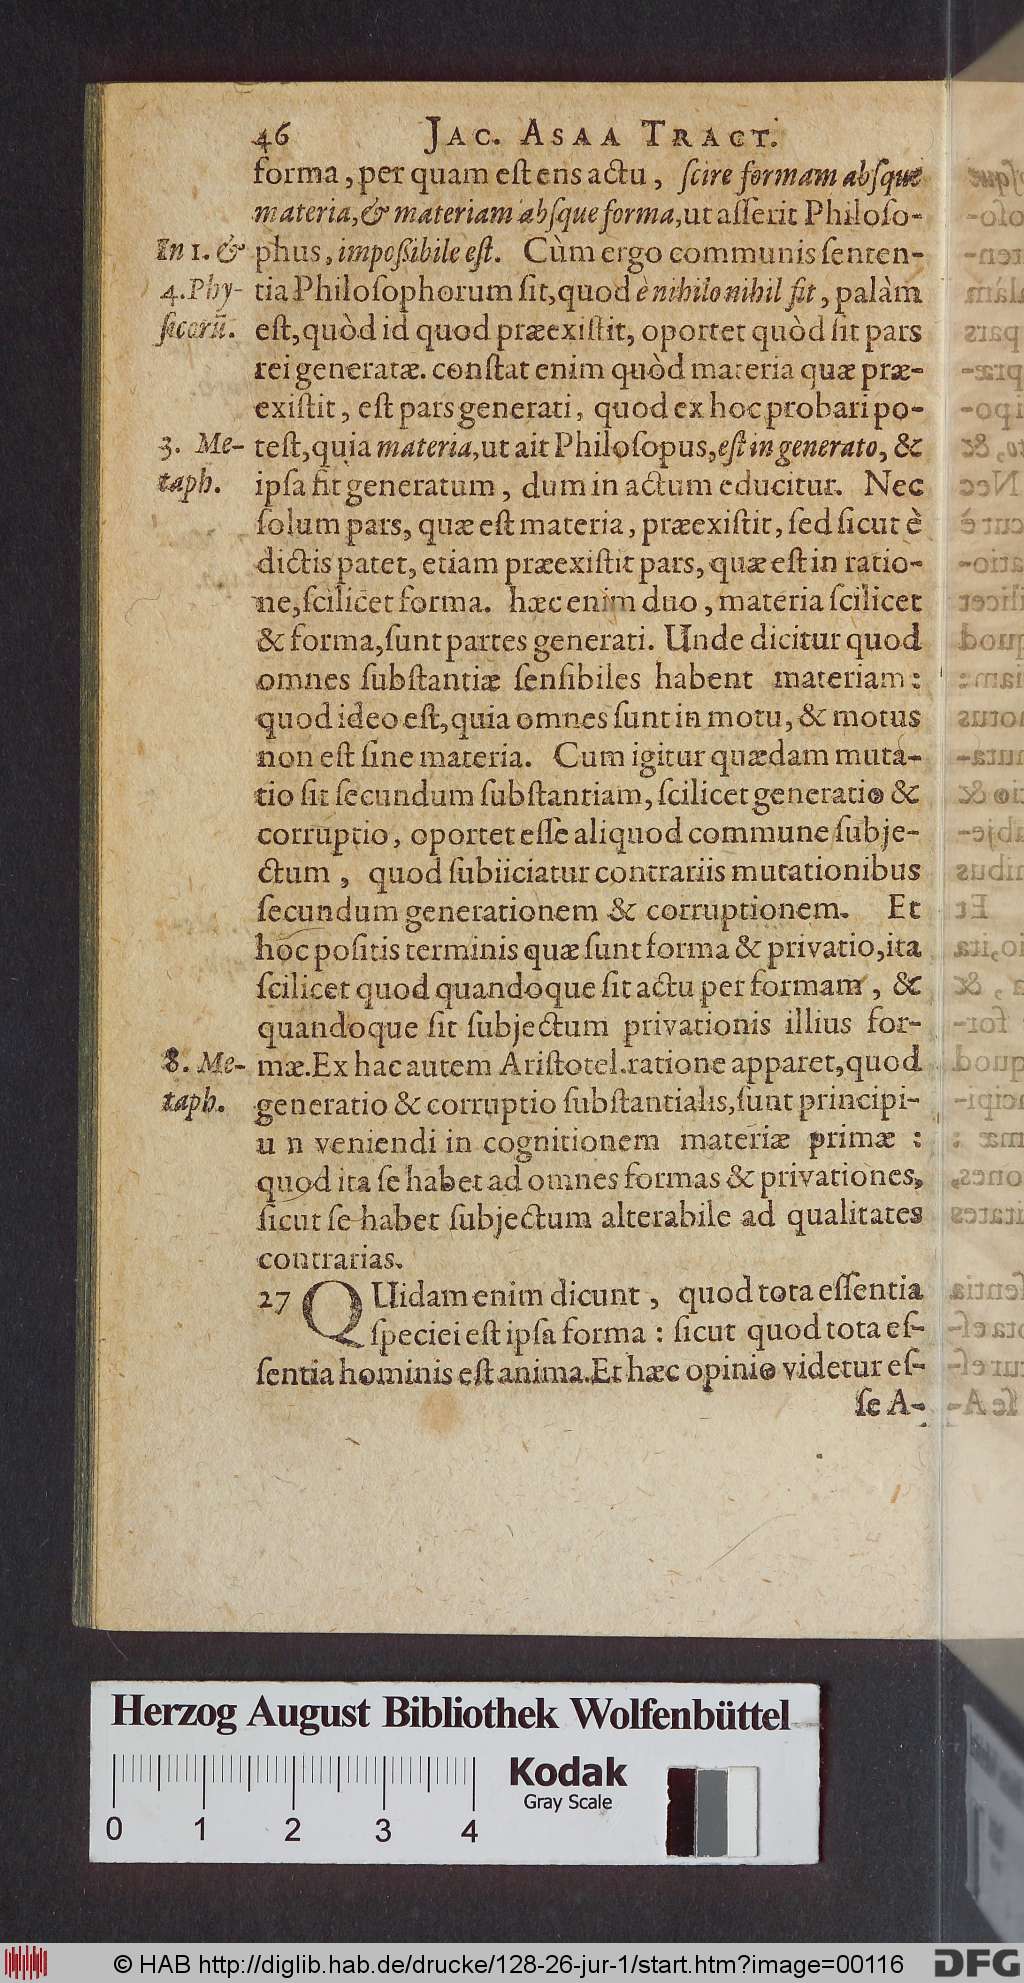 46 JAC. ASAA TRACT.
forma, per quam eſt ens actu, ſcire formam abſque
materia, & materiam abſque forma, ut aſſerit Philoſo-
In 1. & phus, impoſſibile eſt. Cùm ergo communis ſenten-
4. Phy- tia Philoſophorum ſit, quod è nihilo nihil fit, palàm
ſicorũ. eſt, quòd id quod præexiſtit, oportet quòd ſit pars
rei generatæ. conſtat enim quòd materia quæ præ-
exiſtit, eſt pars generati, quod ex hoc probari po-
3. Me- teſt, quia materia, ut ait Philoſopus, eſt in generato, &
taph. ipſa fit generatum, dum in actum educitur. Nec
ſolum pars, quæ eſt materia, præexiſtit, ſed ſicut è
dictis patet, etiam præexiſtit pars, quæ eſt in ratio-
ne, ſcilicet forma. hæc enim duo, materia ſcilicet
& forma, ſunt partes generati. Unde dicitur quod
omnes ſubſtantiæ ſenſibiles habent materiam:
quod ideo eſt, quia omnes ſunt in motu, & motus
non eſt ſine materia. Cum igitur quædam muta-
tio ſit ſecundum ſubſtantiam, ſcilicet generatio &
corruptio, oportet eſſe aliquod commune ſubje-
ctum, quod ſubiiciatur contrariis mutationibus
ſecundum generationem & corruptionem. Et
hoc poſitis terminis quæ ſunt forma & privatio, ita
ſcilicet quod quandoque ſit actu per formam, &
quandoque ſit ſubjectum privationis illius for-
8. Me- mæ. Ex hac autem Ariſtotel. ratione apparet, quod
taph. generatio & corruptio ſubſtantialis, ſunt principi-
u n veniendi in cognitionem materiæ primæ:
quod ita ſe habet ad omnes formas & privationes,
ſicut ſe habet ſubjectum alterabile ad qualitates
contrarias.
27 QUidam enim dicunt, quod tota eſſentia
ſpeciei eſt ipſa forma: ſicut quod tota eſ-
ſentia hominis eſt anima. Et hæc opinio videtur eſ-
ſe A-
Herzog August Bibliothek Wolfenbüttel
Kodak
Gray Scale
0 1 2 3 4
© HAB http://diglib.hab.de/drucke/128-26-jur-1/start.htm?image=00116
DFG